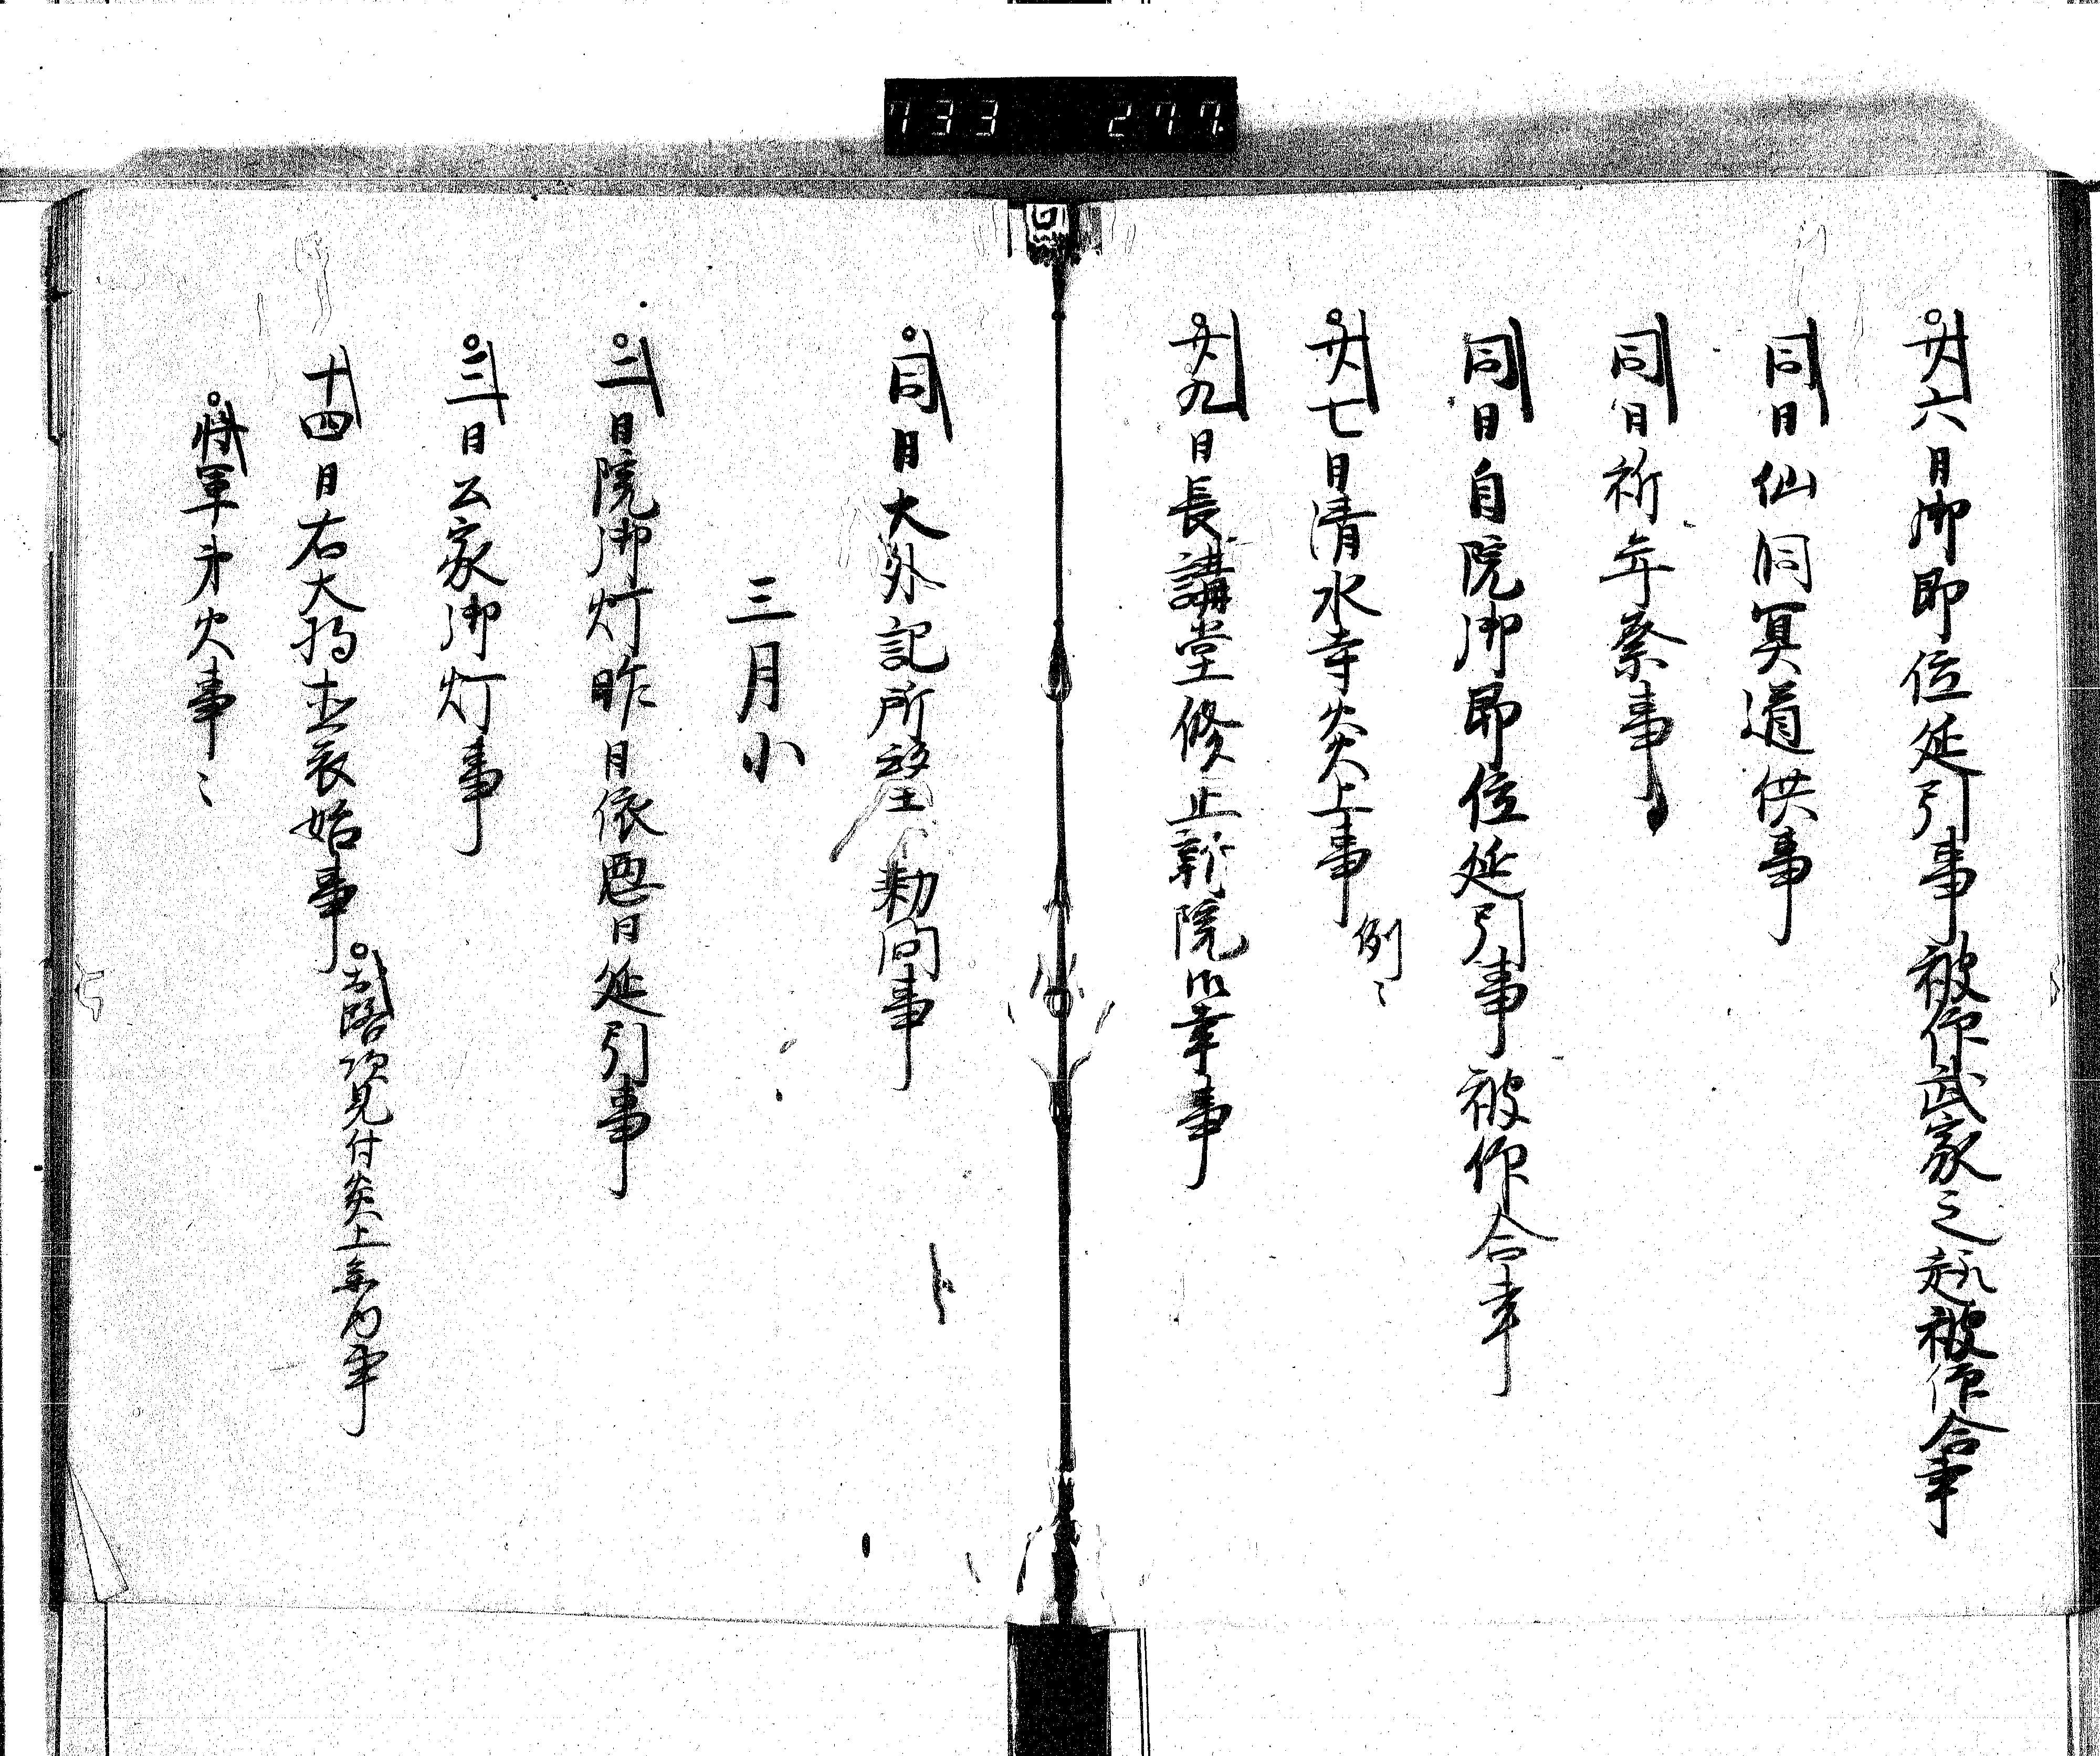 733 277
廿六日御即位延引事被仰武家之趣被仰合事
同日仙洞冥道供事
同日祈年祭事
同日自院御即位延引事被仰合事
廿七日清水寺炎上事 例
廿九日長講堂修正新院御幸事
同日大外記所望 勅問事
三月小
二日院御灯昨日依悪日延引事
三日公家御灯事
十四日右大将直衣始事
見付炎上 事
将軍 火事